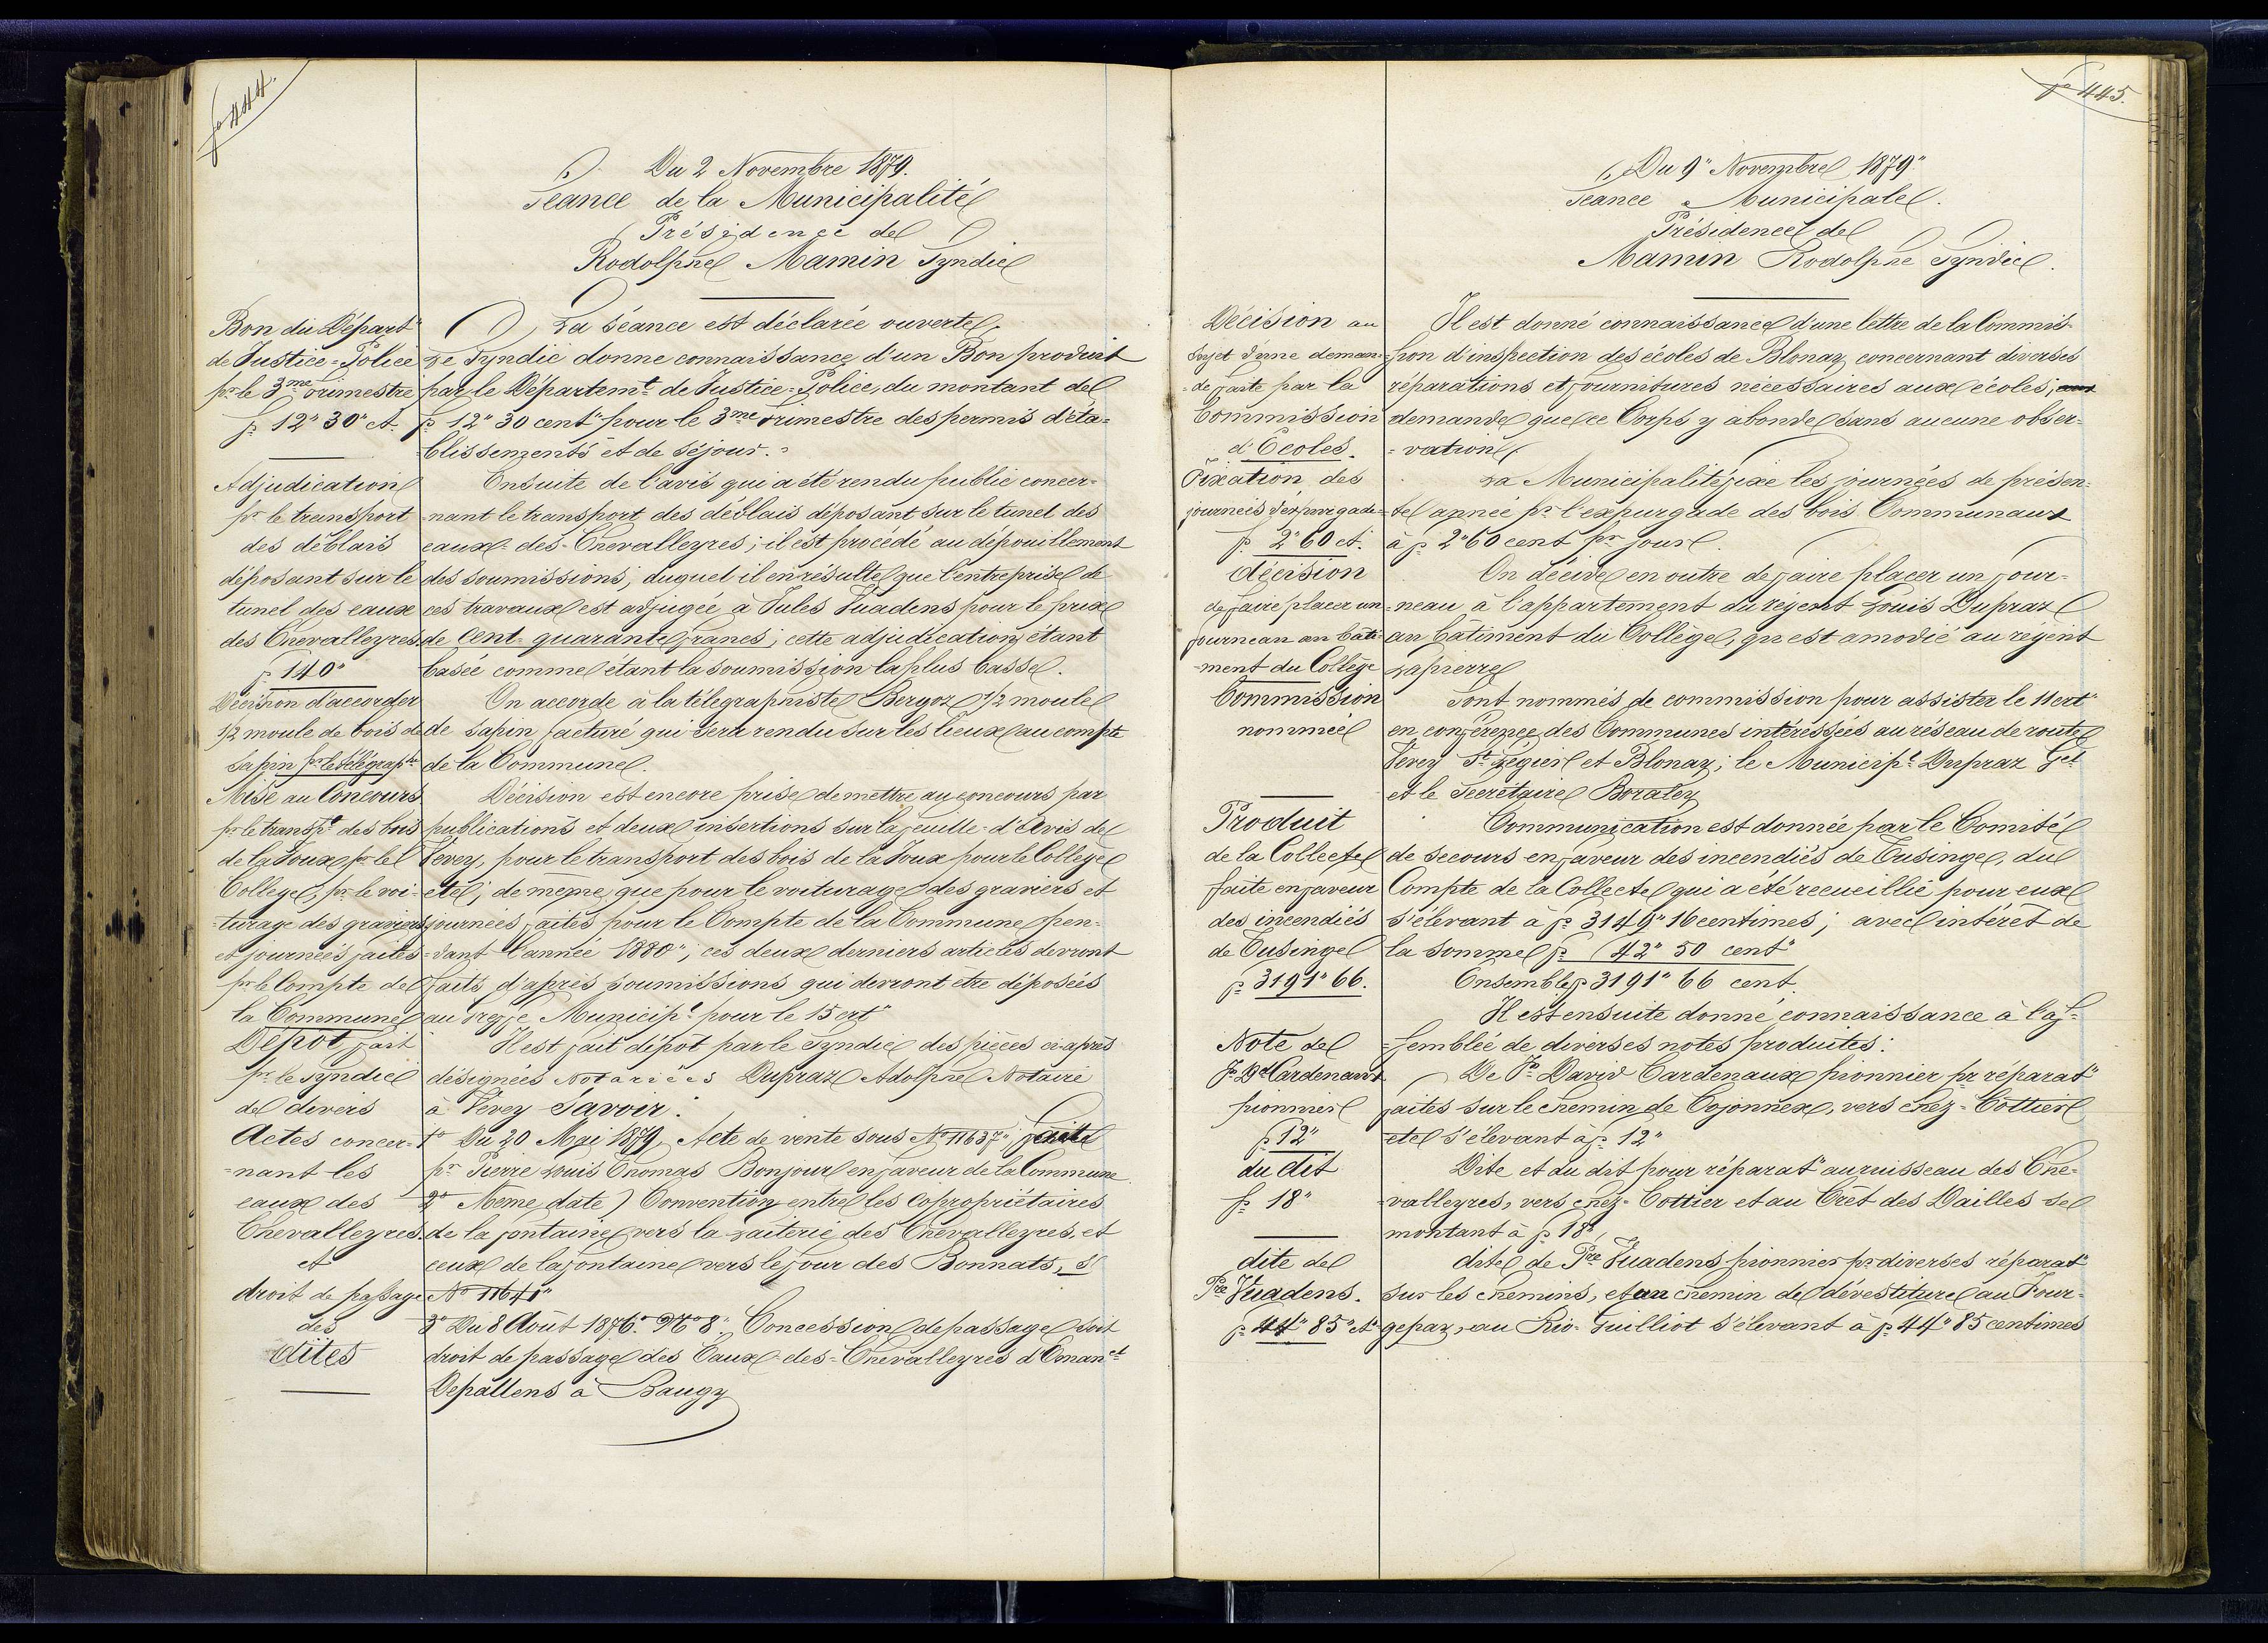 fo 444.
Du 2 Novembre 1879.
Séance de la Municipalité
Présidence de
Rodolphe Mamin Syndic
Bon du Départ"
de Justice=Police
pr le 3me trimestre
fr 12" 30" ct.
La séance est déclarée ouverte,
Le Syndic donne connaissance d'un Bon produit
par le Départemt de Justice=Police, du montant de
fr 12" 30 cent" pour le 3me trimestre des permis d'éta=
=blissements et de séjour.
Adjudication
pr le transport
des déblais
déposant sur le
tunel des eaux
des Chevalleyres
fr 140"
Ensuite de l'avis qui a été rendu public concer=
=nant le transport des déblais déposant sur le tunel des
eaux=des=Chevalleyres; il est procédé au dépouillement
des soumissions; duquel il en résulte que l'entreprise de
ces travaux est adjugée à Jules Vuadens pour le prix
de Cent-quarante francs; cette adjudication étant
basée comme étant la soumission la plus basse.
Décision d'accorder
1/2 moule de bois de
sapin pr le télégraphe
On accorde à la télégraphiste Bergoz 1/2 moule
de sapin facturé qui sera rendu sur les lieux au compte
de la Commune.
Mise au Concours
pr le transpt des bois
de la Joux pr le
College, pr le voi=
=turage des graviers
et journées faites
pr le Compte de
la Commune
Décision est encore prise de mettre au concours par
publications et deux insertions sur la feuille-d'Avis de
Vevey, pour le transport des bois de la Joux pour le College
etc; de même que pour le voiturage des graviers et
journées faites pour le Compte de la Commune pen=
=dant l'année 1880"; ces deux derniers articles devront
faits d'après soumissions qui devront être déposées
au greffe Municipl pour le 15 crt"
Dépot fait
pr le Syndic
de divers
Actes concer=
=nant les
eaux des
Chevalleyres
et
droit de passage
des
dites
Il est fait dépot par le Syndic des pièces ci-après
désignées Notariées Dupraz Adolphe Notaire
à Vevey Savoir:
1o Du 20 Mai 1879, Acte de vente sous No 11637"
pr Pierre Louis Thomas Bonjour en faveur de la Commune
2o Meme date) Convention entre les Copropriétaires
de la fontaine vers la Laiterie des Chevalleyres, et
ceux de la fontaine vers le four des Bonnats, s/
No 11641"
3o Du 8 Août 1876. No 8". Concession de passage soit
droit de passage des Eaux-des=Chevalleyres d'Emanel
Depallens à Baugy
fo 445.
Du 9" Novembre 1879"
Séance Municipale.
Présidence de
Mamin Rodolphe Syndic.
Décision au
sujet d'une deman=
=de faite par la
Commission
d'Ecoles.
Il est donné connaissance d'une lettre de la Commis=
=sion d'inspection des écoles de Blonay concernant diverses
réparations et fournitures nécessaires aux écoles;
demande que ce Corps y abonde sans aucune obser=
=vation
Fixation des
journées d'expurgade
fr 2"60 ct.
La Municipalité fixe les journées de présen=
=te année pr l'expurgade des bois Communaux
à fr 2"60 cent pr jour.
décision
de faire placer un
fourneau au bâti=
=ment du Collège
On décide en outre de faire placer un four=
=neau à l'appartement du régent Louis Dupraz
au bâtiment du Collège, qu est amodié au régent
Lapierre
Commission
nommée
Sont nommés de commission pour assister le 11 crt"
en conférence des Communes intéressées au réseau de route
Vevey St Légier et Blonay; le Municipl Dupraz Gel
et le Secrétaire Boraley
Produit
de la Collecte
faite en faveur
des incendiés
de Eusinge
fr 3191" 66.
Communication est donnée par le Comité
de secours en faveur des incendiés de Eusinge, du
Compte de la Collecte qui a été recueillie pour eux
s'élevant à fr 3149" 16 centimes; avec intérêt de
la somme fr (42" 50 cent"
Ensemble fr 3191" 66 cent.
Il est ensuite donné connaissance à l'as=
=semblée de diverses notes produites:
Note de
Fs Dd Cardenaux
pionnier
fr 12"
De Fs David Cardenaux pionnier pr réparat"
faites sur le chemin de Cojonnex, vers chez-Cottier
etc s'élevant à fr 12"
du dit
fr 18"
Dite et du dit pour réparat" au ruisseau des Che=
=valleyres, vers chez-Cottier et au Crêt des Dailles se
montant à fr 18",
dite de
Pre Vuadens.
fr 44" 85" ct
dite de Pre Vuadens pionnier pr diverses réparat"
sur les chemins, et au chemin de dévestiture au Four=
gepaz, au Rio-Guilliot s'élevant à fr 44" 85 centimes